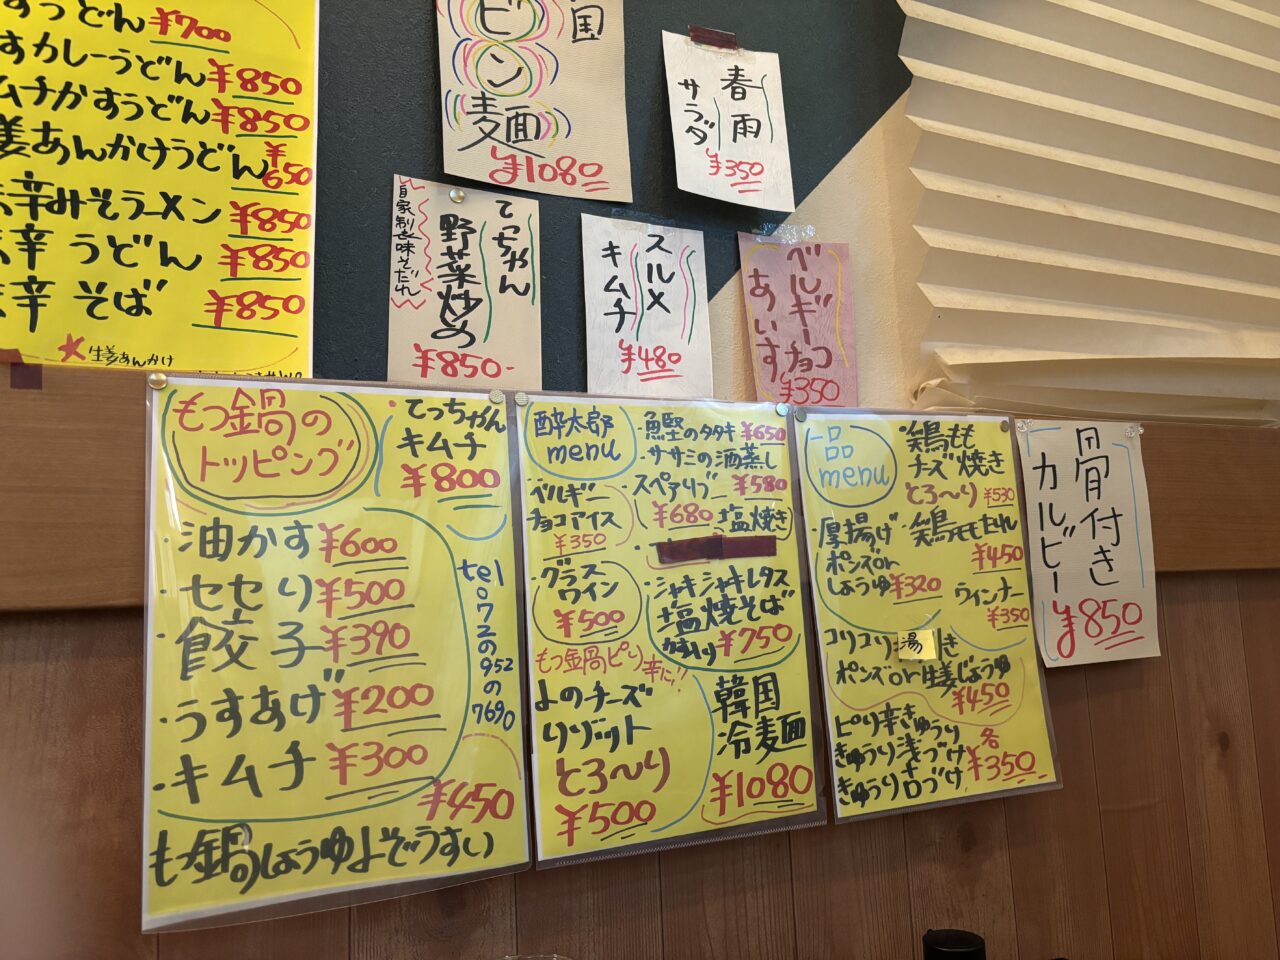 うどん ¥700
すカレーうどん ¥850
ムチかすうどん ¥850
姜あんかけうどん ¥650
辛みそラーメン ¥850
辛 うどん ¥850
辛 そば ¥850
生姜あんかけ
国
ビン麺
¥1080
春雨
サラダ
¥350
てっちゃん
野菜炒め
自家製
¥850-
スルメ
キムチ
¥480
ベルギーチョコ
あいす
¥350
もつ鍋の
トッピング
てっちゃん
キムチ
¥800
・油かす ¥600
・セセリ ¥500
・餃子 ¥390
・うすあげ ¥200
・キムチ ¥300
¥450
もつ鍋のしょうゆよぞうすい
tel
072の952の7690
酔太郎
menu
・鰹のタタキ ¥650
・ササミの酒蒸し
¥580
・スペアリブ
¥680 塩焼き
ベルギー
チョコアイス
¥350
グラス
ワイン
¥500
・シャキシャキレタス
塩焼そば
¥750
もつ鍋ピリ辛に!!
よのチーズ
リゾット
とろ〜り
¥500
韓国
冷麦面
¥1080
一品
menu
・鶏もも
チーズ焼き
とろ〜り ¥530
・厚揚げ
ポンズor
しょうゆ ¥320
・鶏ももたれ
¥450
ウィンナー
¥350
コリコリ湯引き
ポンズor生姜じょうゆ
¥450
ピリ辛きゅうり
きゅうり浅づけ
きゅうり古づけ
各
¥350
骨付き
カルビー
¥850